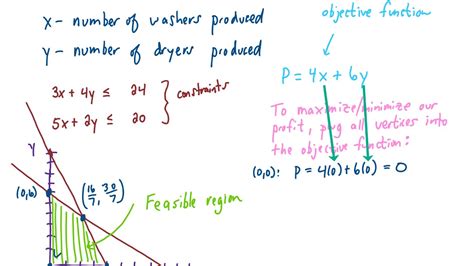 x - number of washers produced
y - number of dryers produced
3x + 4y ≤ 24
5x + 2y ≤ 20
} constraints
objective function
P = 4x + 6y
To maximize/minimize our
profit, plug all vertices into
the objective function:
(0,0): P = 4(0) + 6(0) = 0
Y
(0,6)
(16/7, 30/7)
Feasible region